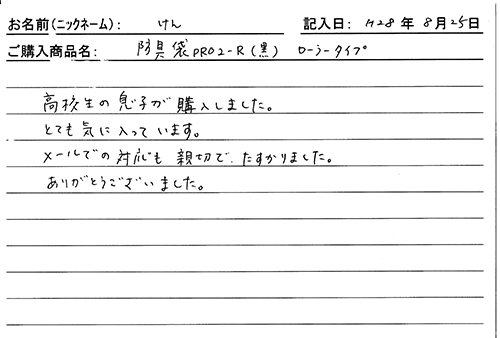 お名前(ニックネーム): けん 記入日: H28年 8月25日
ご購入商品名: 防具袋PRO2-R(黒) ロージータイプ
高校生の息子が購入しました。
とても気に入っています。
メールでの対応も親切で、たすかりました。
ありがとうございました。